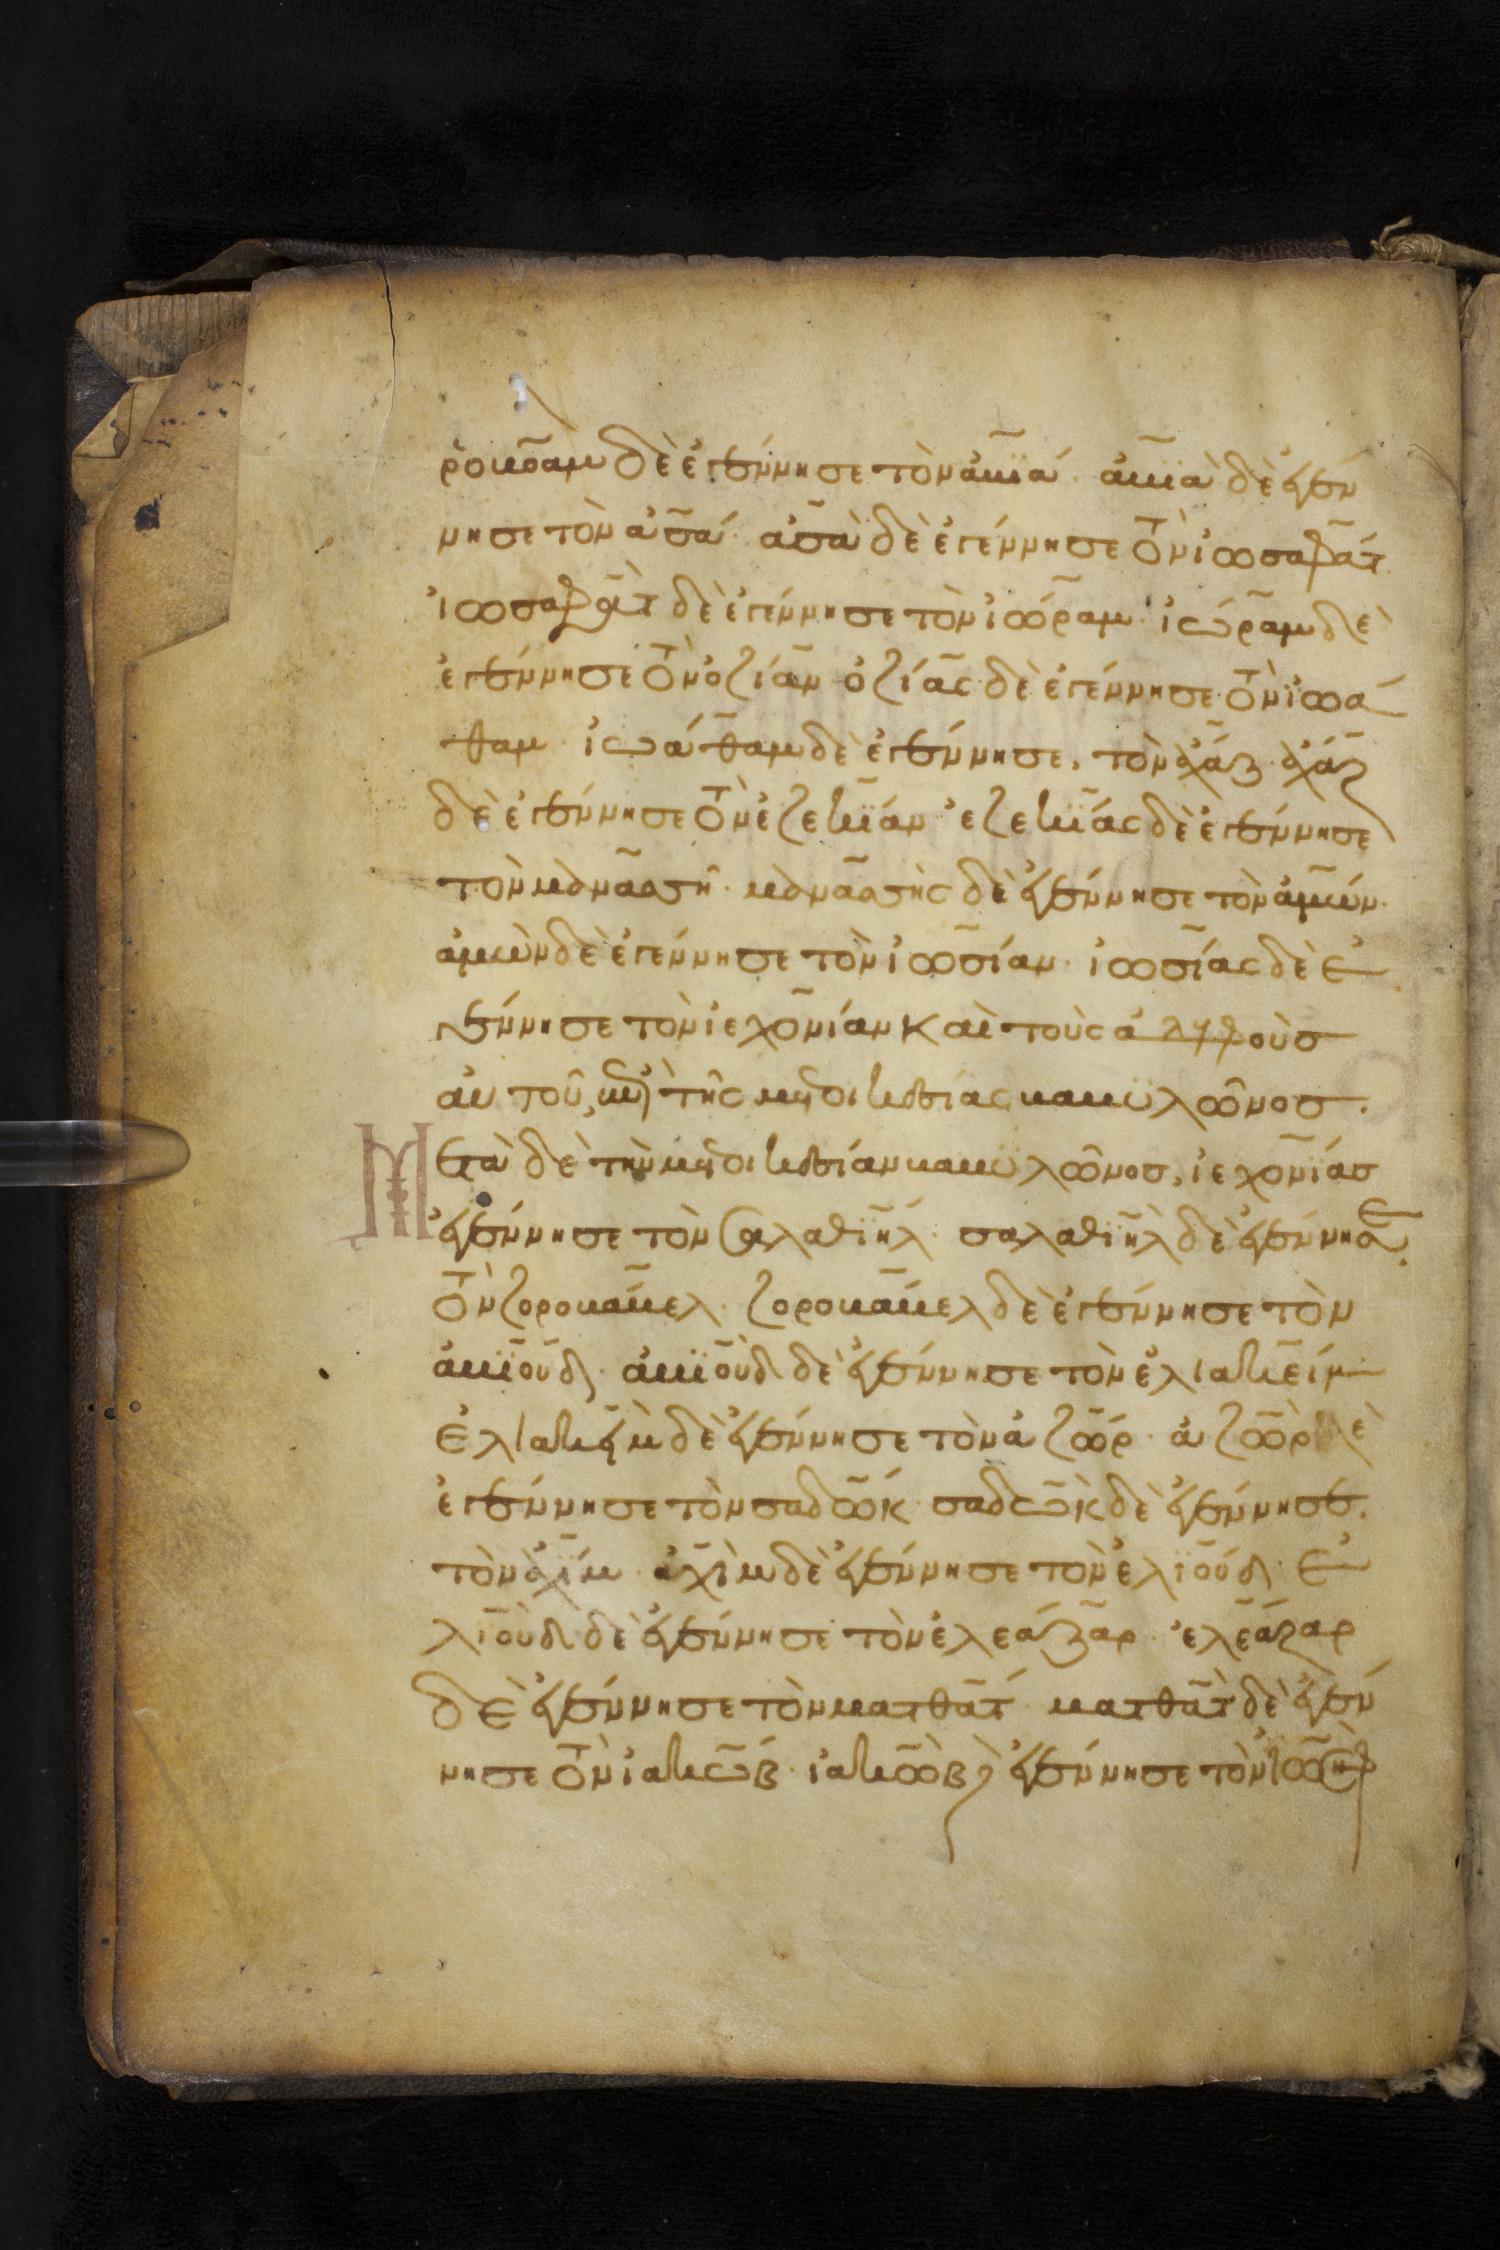 ῥοβοὰμ δὲ ἐγέννησε τὸν ἀβϊά· ἀβϊὰ δὲ ἐγέν
νησε τὸν ἀσά· ἀσὰ δὲ ἐγέννησε τὸν ἰωσαφάτ
ἰωσαφὰτ δὲ ἐγέννησε τὸν ἰώραμ· ἰώραμ δὲ
ἐγέννησε τὸν ὀζίαν ὀζίας δὲ ἐγέννησε τὸν ἰωά
θαμ· ἰωάθαμ δὲ ἐγέννησε, τὸν ἀχάζ· ἀχάζ
δὲ ἐγέννησε τὸν ἐζεκϊάν ἐζεκϊάς δὲ ἐγέννησε
τὸν μανασσῆ· μανασσὴς δὲ ἐγέννησε τὸν ἀμών·
ἀμὼν δὲ ἐγέννησε τὸν ἰωσίαν· ἰωσίας δὲ ἐ
γέννησε τὸν ἰεχονίαν καὶ τοὺς ἀδελφοὺσ
αὐτοῦ, ἐπὶ τῆς μετοικεσίας βαβυλῶνοσ.
Μετὰ δὲ τὴν μετοικεσίαν βαβυλῶνοσ, ἰεχονίασ
ἐγέννησε τὸν σαλαθιήλ· σαλαθιὴλ δὲ ἐγέννησε
τὸν ζοροβάβελ· ζοροβάβελ δὲ ἐγέννησε τὸν
ἀβϊούδ· ἀβϊοὺδ δὲ ἐγέννησε τὸν ἐλιακείμ
ἐλιακεὶμ δὲ ἐγέννησε τὸν ἀζώρ· ἀζὼρ δὲ
ἐγέννησε τὸν σαδώκ· σαδὼκ δὲ ἐγέννησε.
τὸν ἀχΐμ· ἀχὶμ δὲ ἐγέννησε τὸν ἐλϊούδ· ἐ
λϊοὺδ δὲ ἐγέννησε τὸν ἐλεάζαρ· ἐλεάζαρ
δὲ ἐγέννησε τὸν ματθάτ· ματθὰτ δὲ ἐγέν
νησε τὸν ἰακώβ· ἰακὼβ δὲ ἐγέννησε τὸν ἰωσήφ